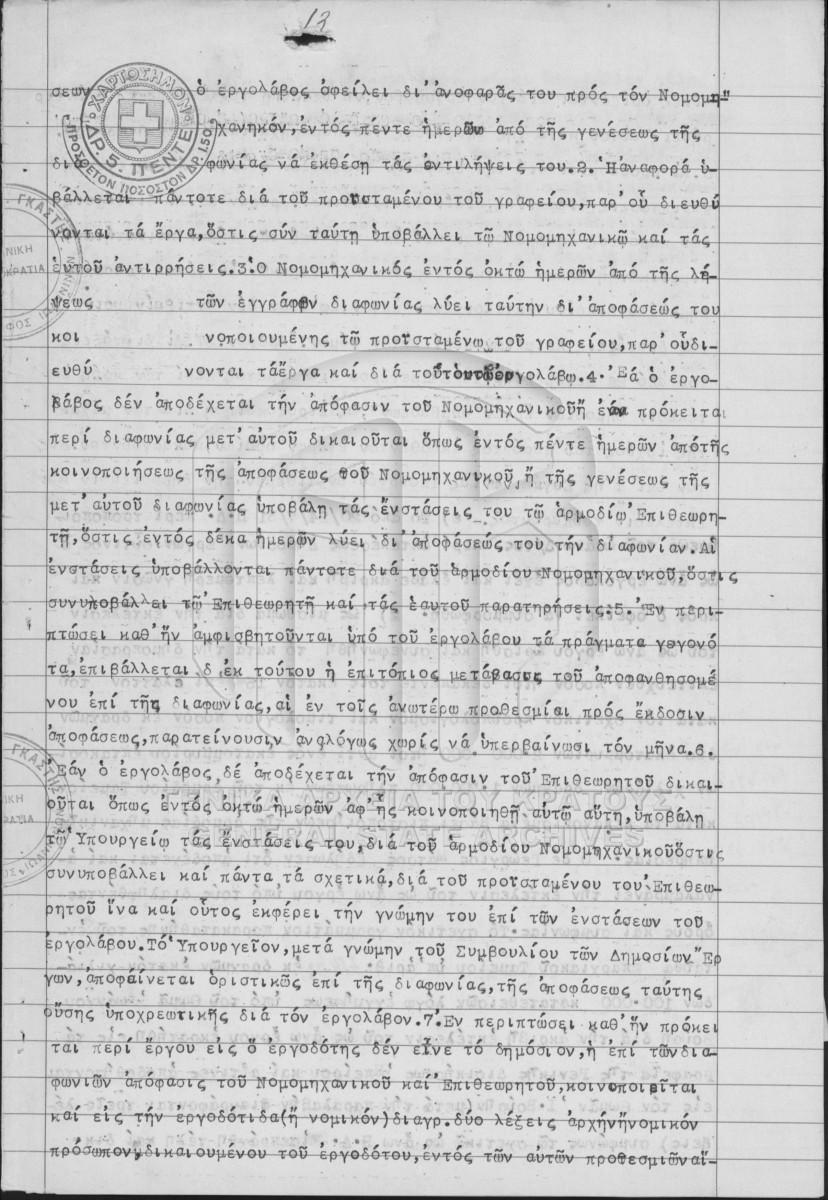 13
σεων ὁ ἐργολάβος ὀφείλει δι' ἀνοφαρᾶς του πρός τόν Νομομη-
χανηκόν, ἐντός πέντε ἡμερῶν ἀπό τῆς γενέσεως τῆς
δι φωνίας νά ἐκθέση τάς ἀντιλήψεις του.2. Ἡ ἀναφορά ὑ-
βάλλεται πάντοτε διά τοῦ προισταμένου τοῦ γραφείου, παρ' οὗ διευθύ
νονται τά ἔργα, ὅστις σύν ταύτη ὑποβάλλει τῶ Νομομηχανικῶ καί τάς
ἑυτοῦ ἀντιρρήσεις.3. Ὁ Νομομηχανικός ἐντός ὀκτώ ἡμερῶν ἀπό τῆς λή-
ψεως τῶν ἐγγράφων διαφωνίας λύει ταύτην δι' ἀποφάσεώς του
κοι νοποιουμένης τῶ προισταμένω τοῦ γραφείου, παρ' οὗδι-
ευθύ νονται τάἔργα καί διά τοῦτοῦτῶἐργολάβω.4. Ἐά ὁ ἐργο-
λάβος δέν ἀποδέχεται τήν ἀπόφασιν τοῦ Νομομηχανικοῦἤ ἐάν πρόκειται
περί διαφωνίας μετ' αὐτοῦ δικαιοῦται ὅπως ἐντός πέντε ἡμερῶν ἀπότῆς
κοινοποιήσεως τῆς ἀποφάσεως τοῦ Νομομηχανικοῦ, ἤ τῆς γενέσεως τῆς
μετ' αὐτοῦ διαφωνίας ὑποβάλη τάς ἐνστάσεις του τῶ ἁρμοδίω Ἐπιθεωρη-
τῆ, ὅστις ἐντός δέκα ἡμερῶν λύει δι' ἀποφάσεώς του τήν διαφωνίαν. Αἱ
ἐνστάσεις ὑποβάλλονται πάντοτε διά τοῦ ἁρμοδίου Νομομηχανικοῦ, ὅστις
συνυποβάλλει τῶ Ἐπιθεωρητῆ καί τάς ἑαυτοῦ παρατηρήσεις.5. Ἐν περι-
πτώσει καθ' ἥν ἀμφισβητοῦνται ὑπό τοῦ ἐργολάβου τά πράγματα γεγονό
τα, ἐπιβάλλεται δ ἐκ τούτου ἡ ἐπιτόπιος μετάβασις τοῦ ἀποφανθησομέ
νου ἐπί τῆς διαφωνίας, αἱ ἐν τοῖς ἀνωτέρω προθεσμίαι πρός ἔκδοσιν
ἀποφάσεως, παρατείνουσιν ἀναλόγως χωρίς νά ὑπερβαίνωσι τόν μῆνα.6.
Ἐάν ὁ ἐργολάβος, δέ ἀποδέχεται τήν ἀπόφασιν τοῦ Ἐπιθεωρητοῦ δικαι-
οῦται ὅπως ἐντός ὀκτώ ἡμερῶν ἀφ' ἧς κοινοποιηθῆ αὐτῶ αὕτη, ὑποβάλη
τῶ Ὑπουργείω τάς ἐνστάσεις του, διά τοῦ ἁρμοδίου Νομομηχανικοῦὅστις
συνυποβάλλει καί πάντα τά σχετικά, διά τοῦ προισταμένου του Ἐπιθεω-
ρητοῦ ἵνα καί οὗτος ἐκφέρει τήν γνώμην του ἐπί τῶν ἐνστάσεων τοῦ
ἐργολάβου. Τό Ὑπουργεῖον, μετά γνώμην τοῦ Συμβουλίου τῶν Δημοσίων Ἔρ
γων, ἀποφαίνεται ὁριστικῶς ἐπί τῆς διαφωνίας, τῆς ἀποφάσεως ταύτης
οὔσης ὑποχρεωτικῆς διά τόν ἐργολάβον.7. Ἐν περιπτώσει καθ' ἥν πρόκει
ται περί ἔργου εἰς ὅ ἐργοδότης δέν εἶνε τό δημόσιον, ἡ ἐπί τῶνδια-
φωνιῶν ἀπόφασις τοῦ Νομομηχανικοῦ καί Ἐπιθεωρητοῦ, κοινοποιεῖται
καί εἰς τήν ἐργοδότιδα(ἤ νομικόν)διαγρ. δύο λέξεις ἀρχήνἤνομικόν
πρόσωπον, δικαιουμένου τοῦ ἐργοδότου, ἐντός τῶν αὐτῶν προθεσμιῶν αἵ-
ΧΑΡΤΟΣΗΜΟΝ
ΔΡ. 5. ΠΕΝΤΕ
ΠΡΟΣΘΕΤΟΝ ΠΟΣΟΣΤΟΝ ΔΡ. 1.50
ΓΕΝΙΚΑ ΑΡΧΕΙΑ ΤΟΥ ΚΡΑΤΟΥΣ
GENERAL STATE ARCHIVES